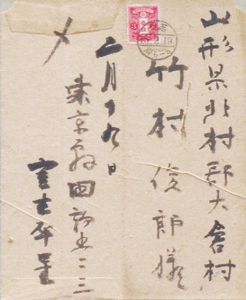 山形県北村郡大倉村
竹村俊郎様
二月十九日
東京田端五二三
室生犀星
〆